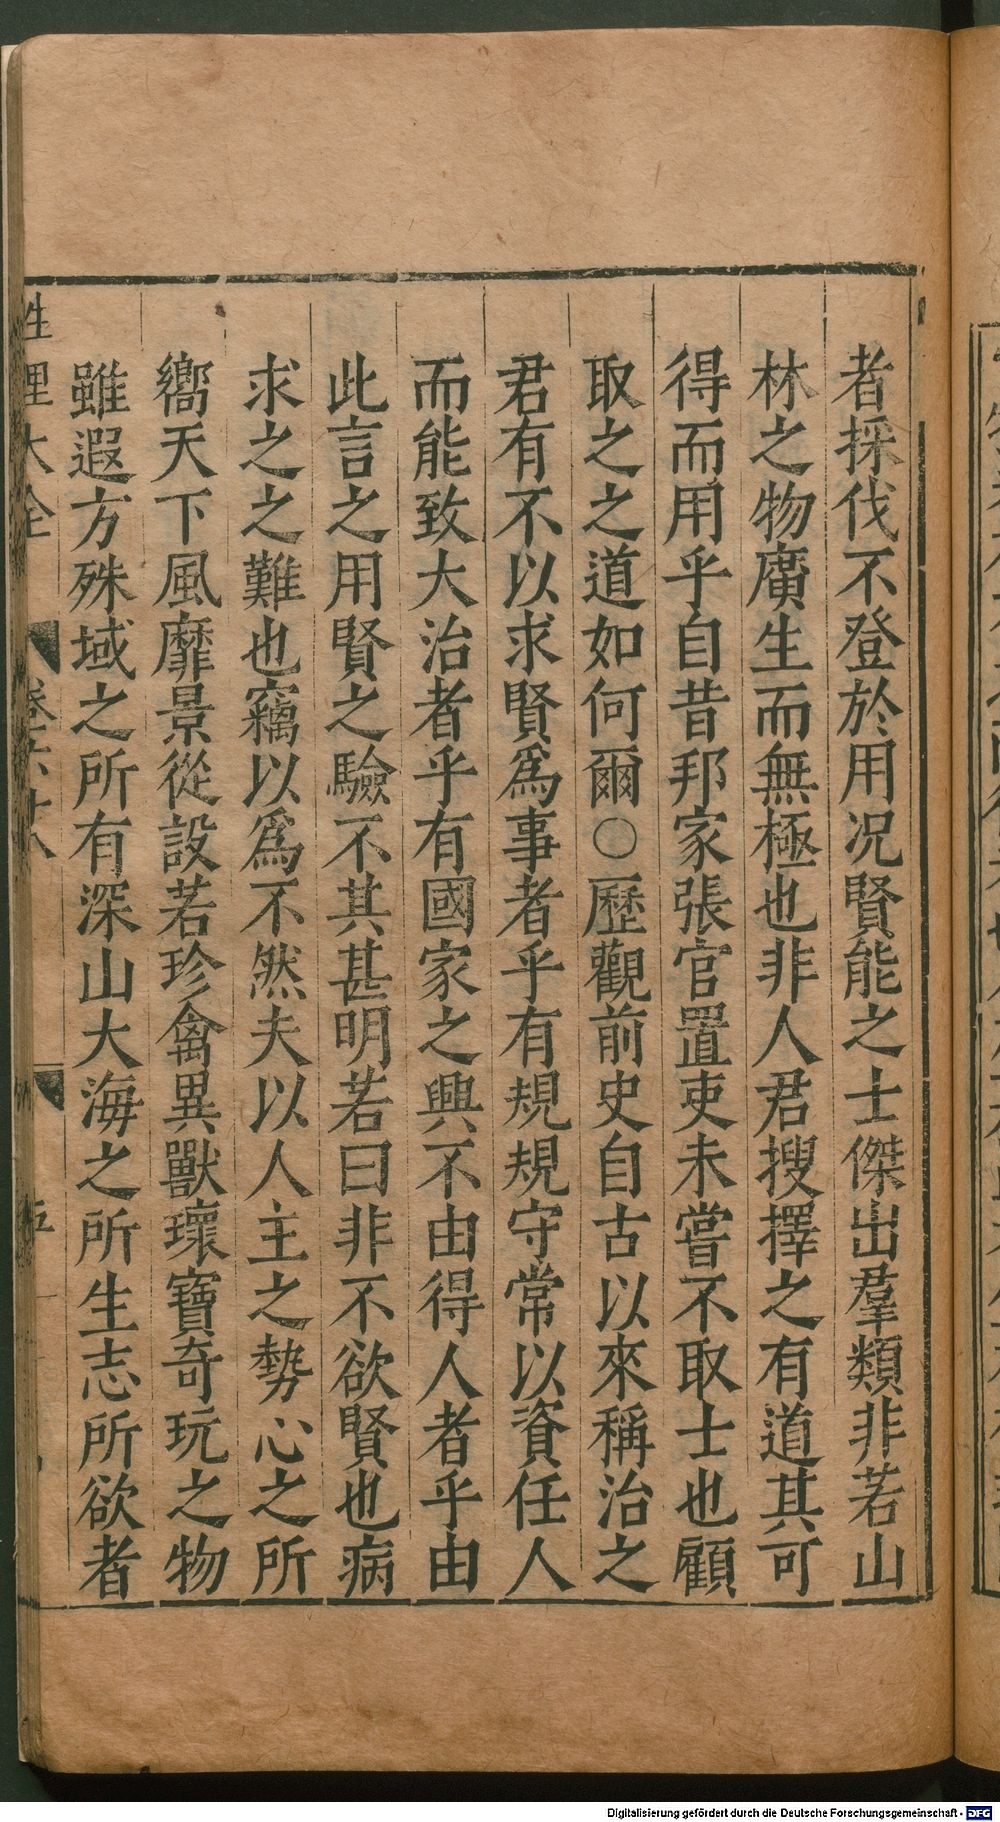 者採伐不登於用况賢能之士傑出羣類非若山
林之物廣生而無極也非人君搜擇之有道其可
得而用乎自昔邦家張官置吏未嘗不取士也顧
取之之道如何爾○歷觀前史自古以來稱治之
君有不以求賢爲事者乎有規規守常以資任人
而能致大治者乎有國家之興不由得人者乎由
此言之用賢之驗不其甚明若曰非不欲賢也病
求之之難也竊以爲不然夫以人主之勢心之所
嚮天下風靡景從設若珍禽異獸瓌寶奇玩之物
雖遐方殊域之所有深山大海之所生志所欲者
性理大全 卷六十八 五
Digitalisierung gefördert durch die Deutsche Forschungsgemeinschaft - DFG